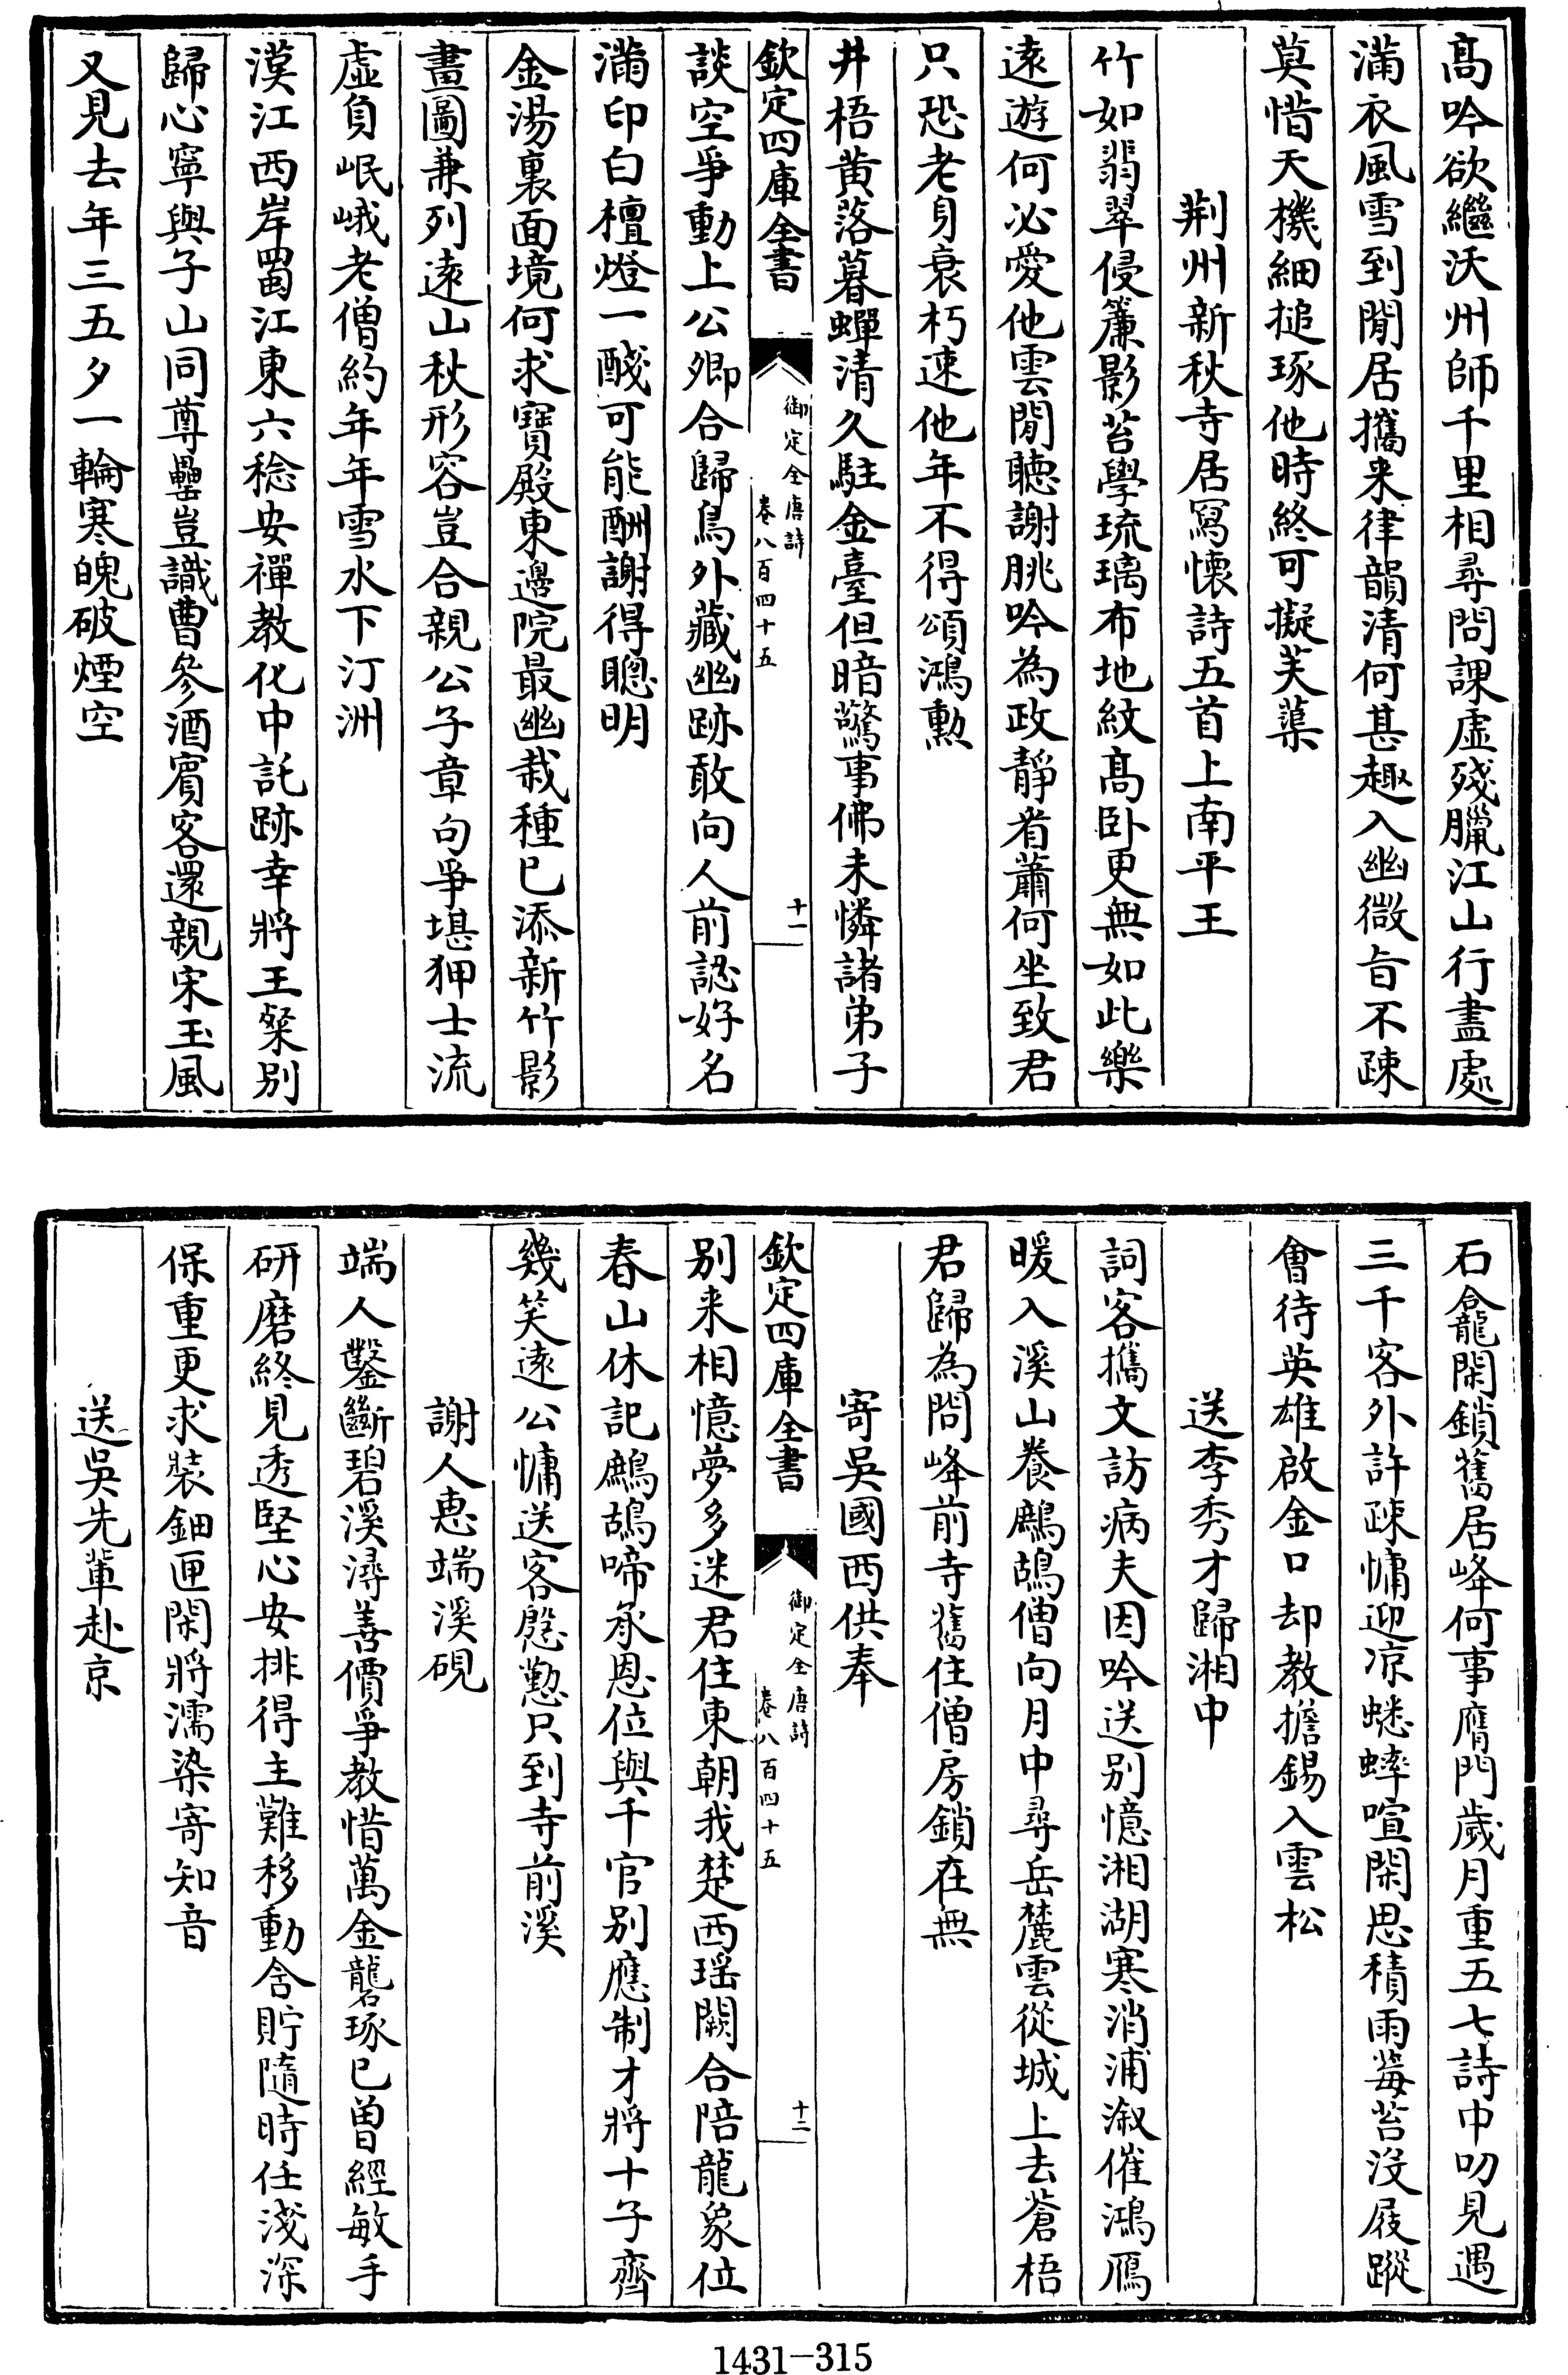 高吟欲繼沃州師千里相尋問課虛殘臘江山行盡處
滿衣風雪到閒居攜来律韻清何甚趣入幽微旨不疎
莫惜天機細搥琢他時終可擬芙蕖
荆州新秋寺居寫懷詩五首上南平王
竹如翡翠侵簾影苔學琉璃布地紋高卧更無如此樂
遠遊何必愛他雲閒聽謝朓吟為政靜看蕭何坐致君
只恐老身衰朽速他年不得頌鴻勲
井梧黄落暮蟬清久駐金臺但暗驚事佛未憐諸弟子
欽定四庫全書
御定全唐詩
卷八百四十五
十一
談空爭動上公卿合歸鳥外藏幽跡敢向人前認好名
滿印白檀燈一醆可能酬謝得聰明
金湯裏面境何求寶殿東邊院最幽栽種已添新竹影
畫圖兼列遠山秋形容豈合親公子章句爭堪狎士流
虛負岷峨老僧約年年雪水下汀洲
漢江西岸蜀江東六稔安禪教化中託跡幸將王粲别
歸心寧與子山同尊罍豈識曹參酒賓客還親宋玉風
又見去年三五夕一輪寒魄破煙空
石龕閑鎖舊居峰何事膺門歲月重五七詩中叨見遇
三千客外許疎慵迎凉蟋蟀喧閑思積雨莓苔沒屐蹤
會待英雄啟金口却教擔錫入雲松
送李秀才歸湘中
詞客攜文訪病夫因吟送别憶湘湖寒消浦溆催鴻雁
暖入溪山養鷓鴣僧向月中尋岳麓雲從城上去蒼梧
君歸為問峰前寺舊住僧房鎖在無
寄吳國西供奉
欽定四庫全書
御定全唐詩
卷八百四十五
十二
别来相憶夢多迷君住東朝我楚西瑤闕合陪龍象位
春山休記鷓鴣啼承恩位與千官别應制才將十子齊
幾笑遠公慵送客殷懃只到寺前溪
謝人惠端溪硯
端人鑿斷碧溪潯善價爭教惜萬金礱琢已曾經敏手
研磨終見透堅心安排得主難移動含貯隨時任淺深
保重更求裝鈿匣閑將濡染寄知音
送吳先輩赴京
1431-315